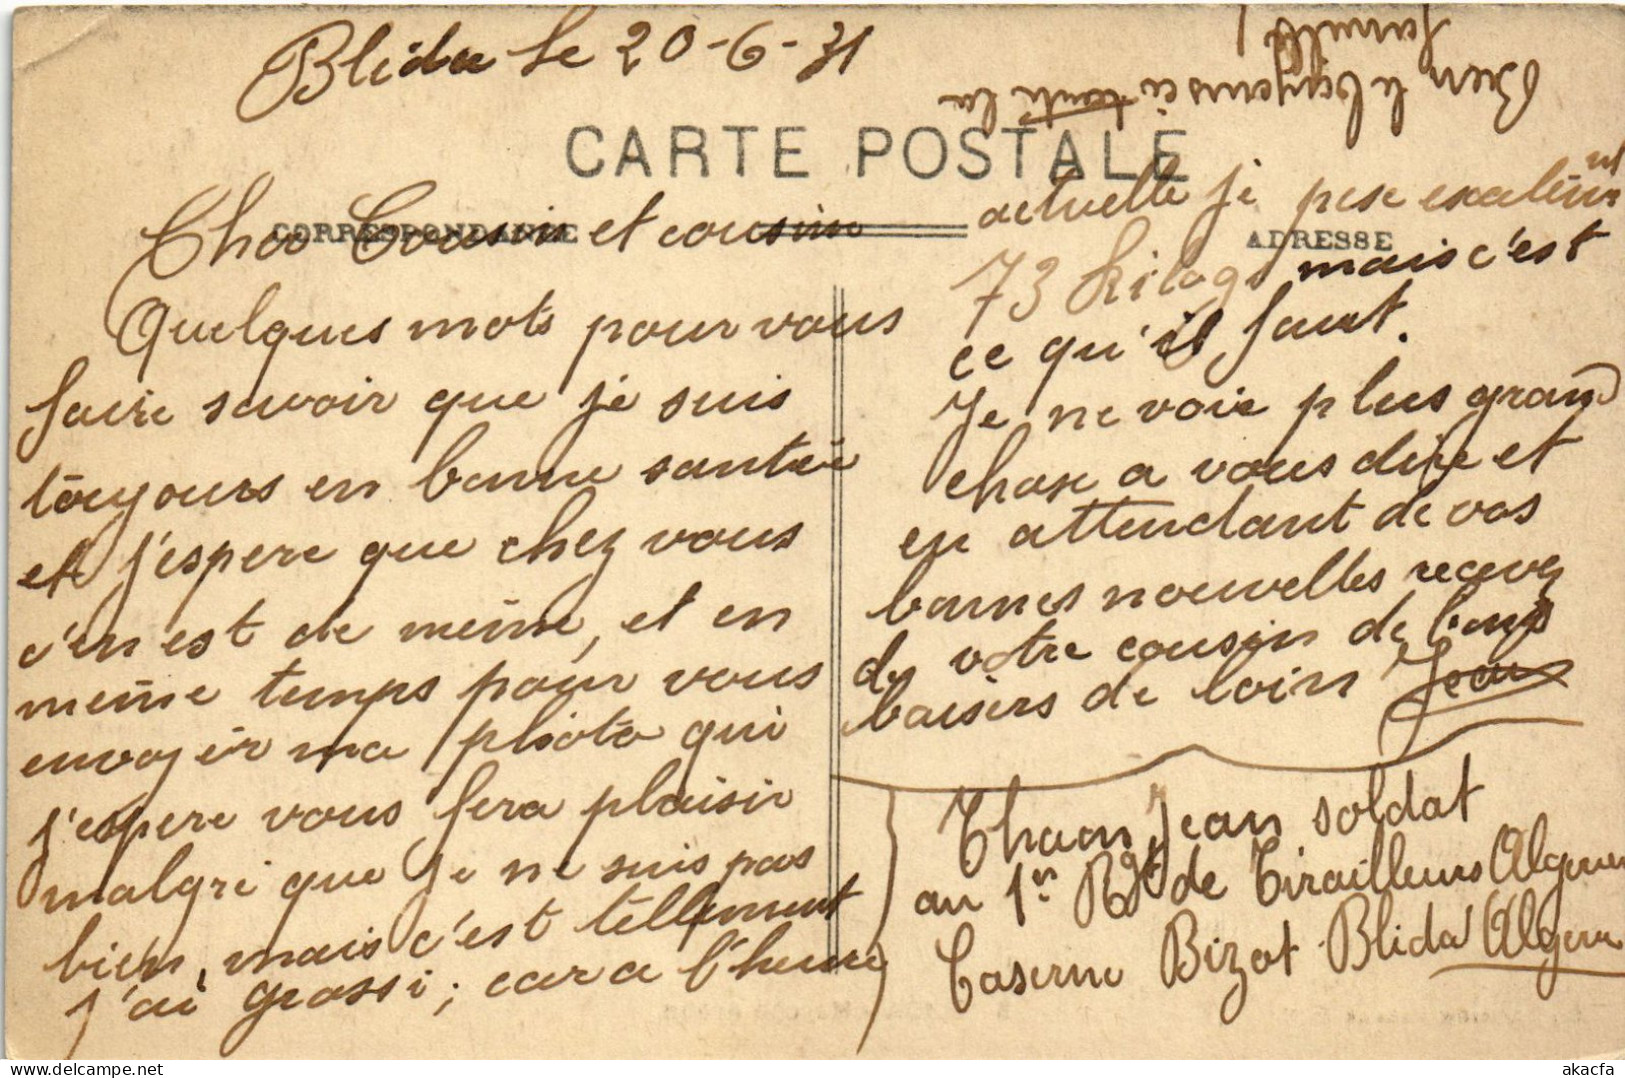 Blida le 20-6-31
CARTE POSTALE
CORRESPONDANCE
ADRESSE
Cher Cousin et cousin
Quelques mots pour vous
faire savoir que je suis
toujours en bonne santée
et j'espere que chez vous
c'en est de même, et en
même temps pour vous
envoyér ma photo qui
j'espere vous fera plaisir
malgri que je ne suis pas
bien, mais c'est tellement
j'ai grossi; car a l'heure
actuelle je pese exalement
73 kilogs mais c'est
ce qu'il faut.
Je ne voie plus grand
chose a vous dire et
en attendant de vos
bonnes nouvelles recevez
de votre cousin de bons
baisers de loin Jean
Bien le bonjours a toute la
famille
Thaon Jean soldat
au 1er Rgt de Tirailleurs Algerien
Caserne Bizot Blida Algerie
akacfa